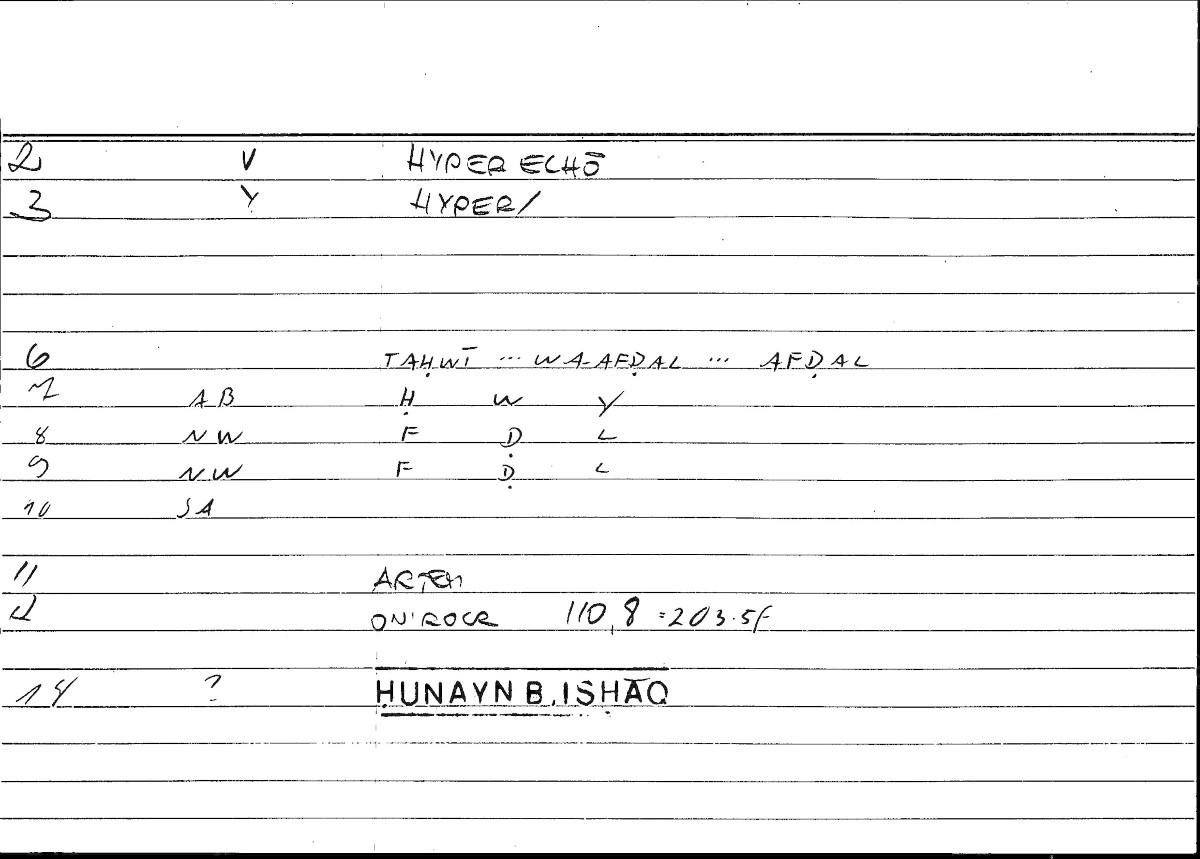 2 V HYPER ECHŌ
3 Y HYPER/
6 TAḤWĪ ... WA-AFḌAL ... AFḌAL
7 AB Ḥ W Y
8 NW F Ḍ L
9 NW F Ḍ L
10 SA
11 ARTEM
12 ONIROCR 110,8 = 203.5F
14 ? ḤUNAYN B. ISḤĀQ